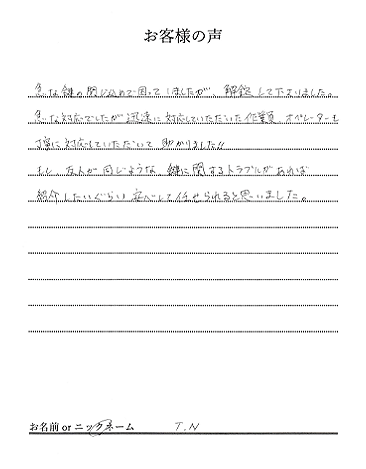 お客様の声
急な鍵の閉じ込めで困ってしましたが、解錠して下さりました。
急な対応でしたが迅速に対応していただいた作業員、オペレーターも
丁寧に対応していただいて助かりました!!
もし、友人が同じような、鍵に関するトラブルがあれば
紹介したいぐらい安心して任せられると思いました。
お名前 or ニックネーム T.N